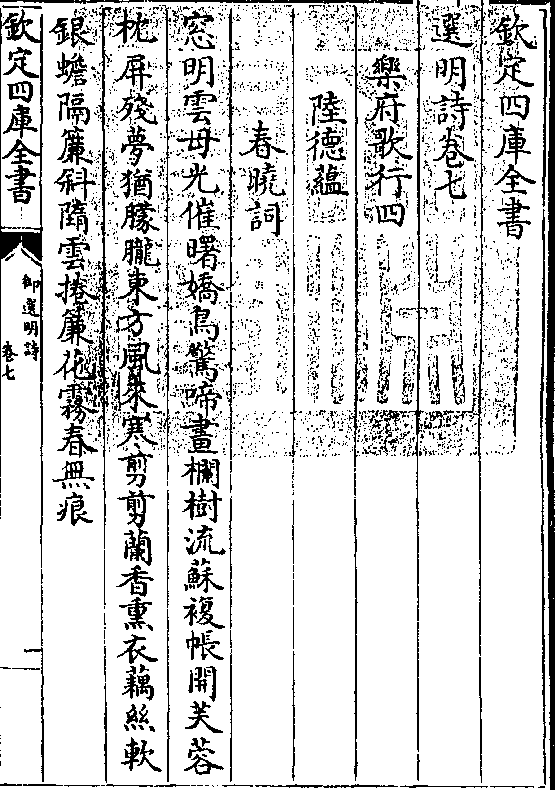 欽定四庫全書
選明詩卷七
樂府歌行四
陸德蘊
春曉詞
窓明雲母光催曙嬌鳥驚啼畫欄樹流蘇複帳開芙蓉
枕屏殘夢猶朦朧東方風來寒剪剪蘭香熏衣藕絲軟
銀蟾隔簾斜隋雲捲簾花霧春無痕
欽定四庫全書
御選明詩
卷七
一